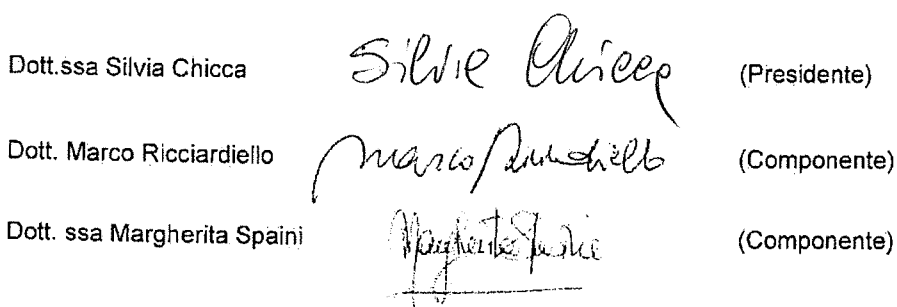 Dott.ssa Silvia Chicca Silvia Chicca (Presidente)
Dott. Marco Ricciardiello Marco Ricciardiello (Componente)
Dott. ssa Margherita Spaini Margherita Spaini (Componente)